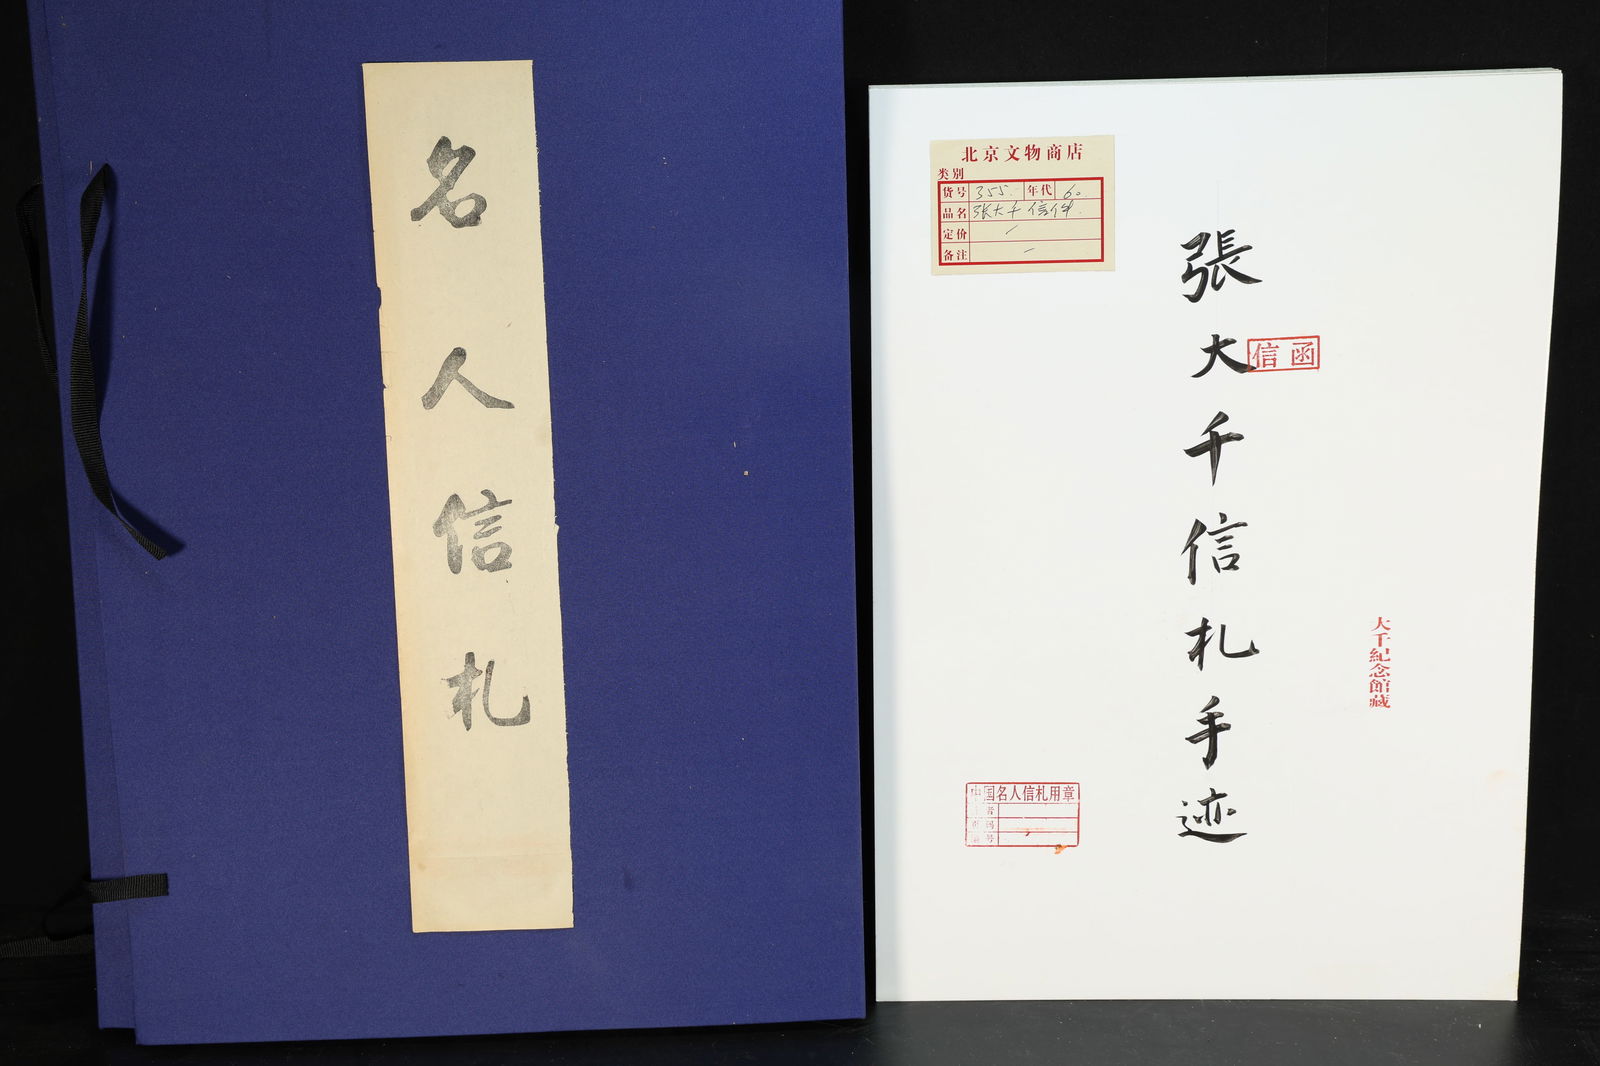 名人信札
北京文物商店
类别
货号 355. 年代 60
品名 张大千信件.
定价
备注
張大千信札手迹
信函
大千紀念館藏
中国名人信札用章
号